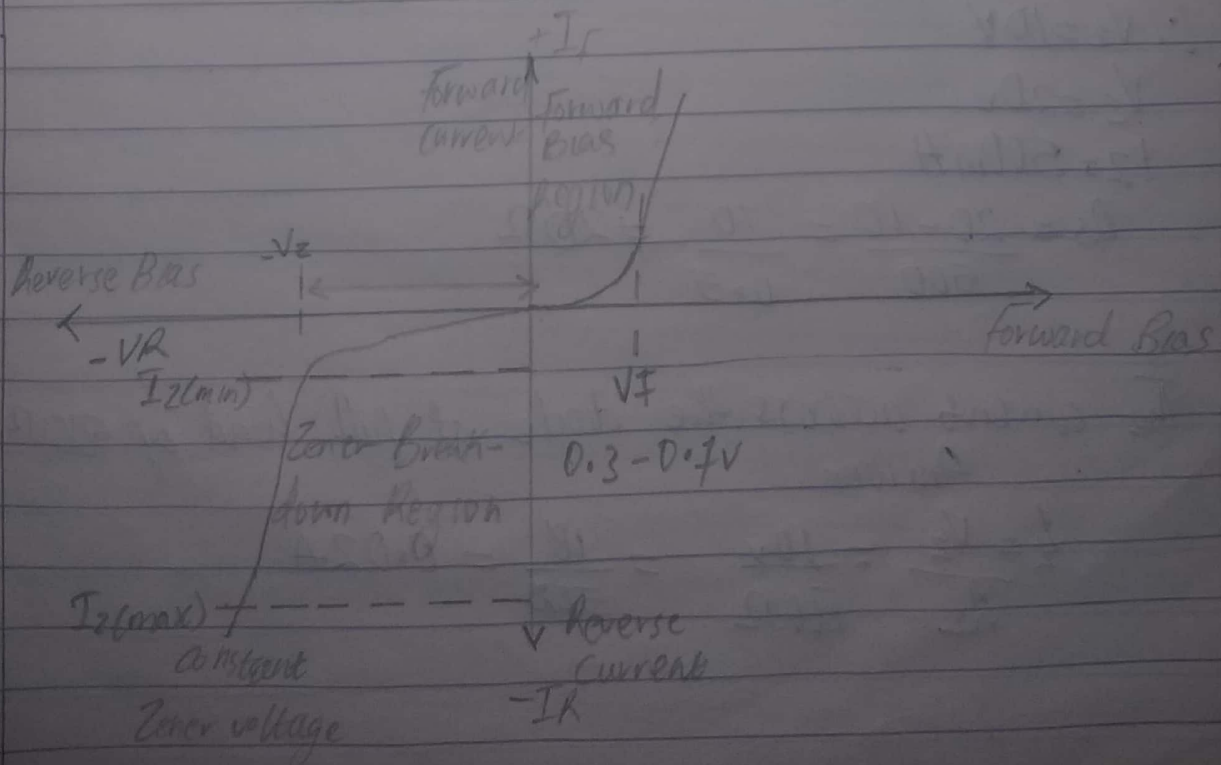 +IF
Forward
Current
Forward
Bias
Region
-Vz
Reverse Bias
-VR
Forward Bias
IZ(min)
VF
Zener Break-
down Region
0.3-0.7V
IZ(max)
Constant
Zener voltage
Reverse
Current
-IR